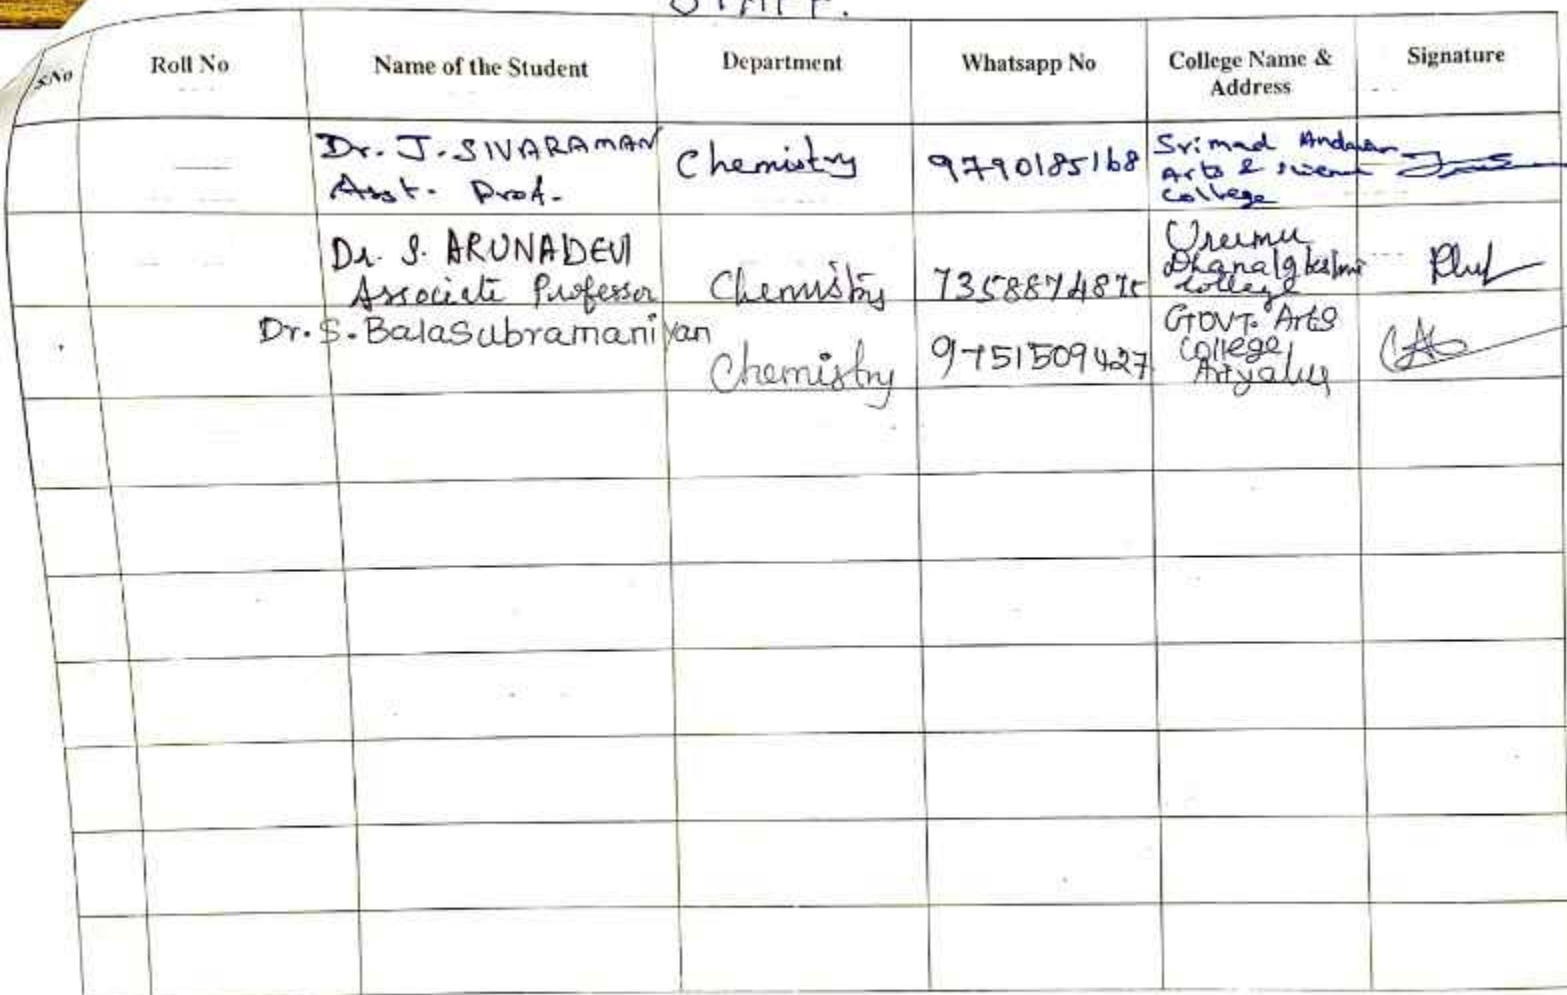 STAFF.
S.No Roll No Name of the Student Department Whatsapp No College Name & Address Signature
Dr. J. SIVARAMAN Chemistry 9790185168 Srimad Andavan
Asst. Prof. Arts & Science
College
Dr. S. ARUNADEVI Chemistry
Associate Professor
Dhanalakshmi
College
Dr. S. Balasubramaniyan Chemistry 9751509427 GOVT. Arts
College
Ariyalur